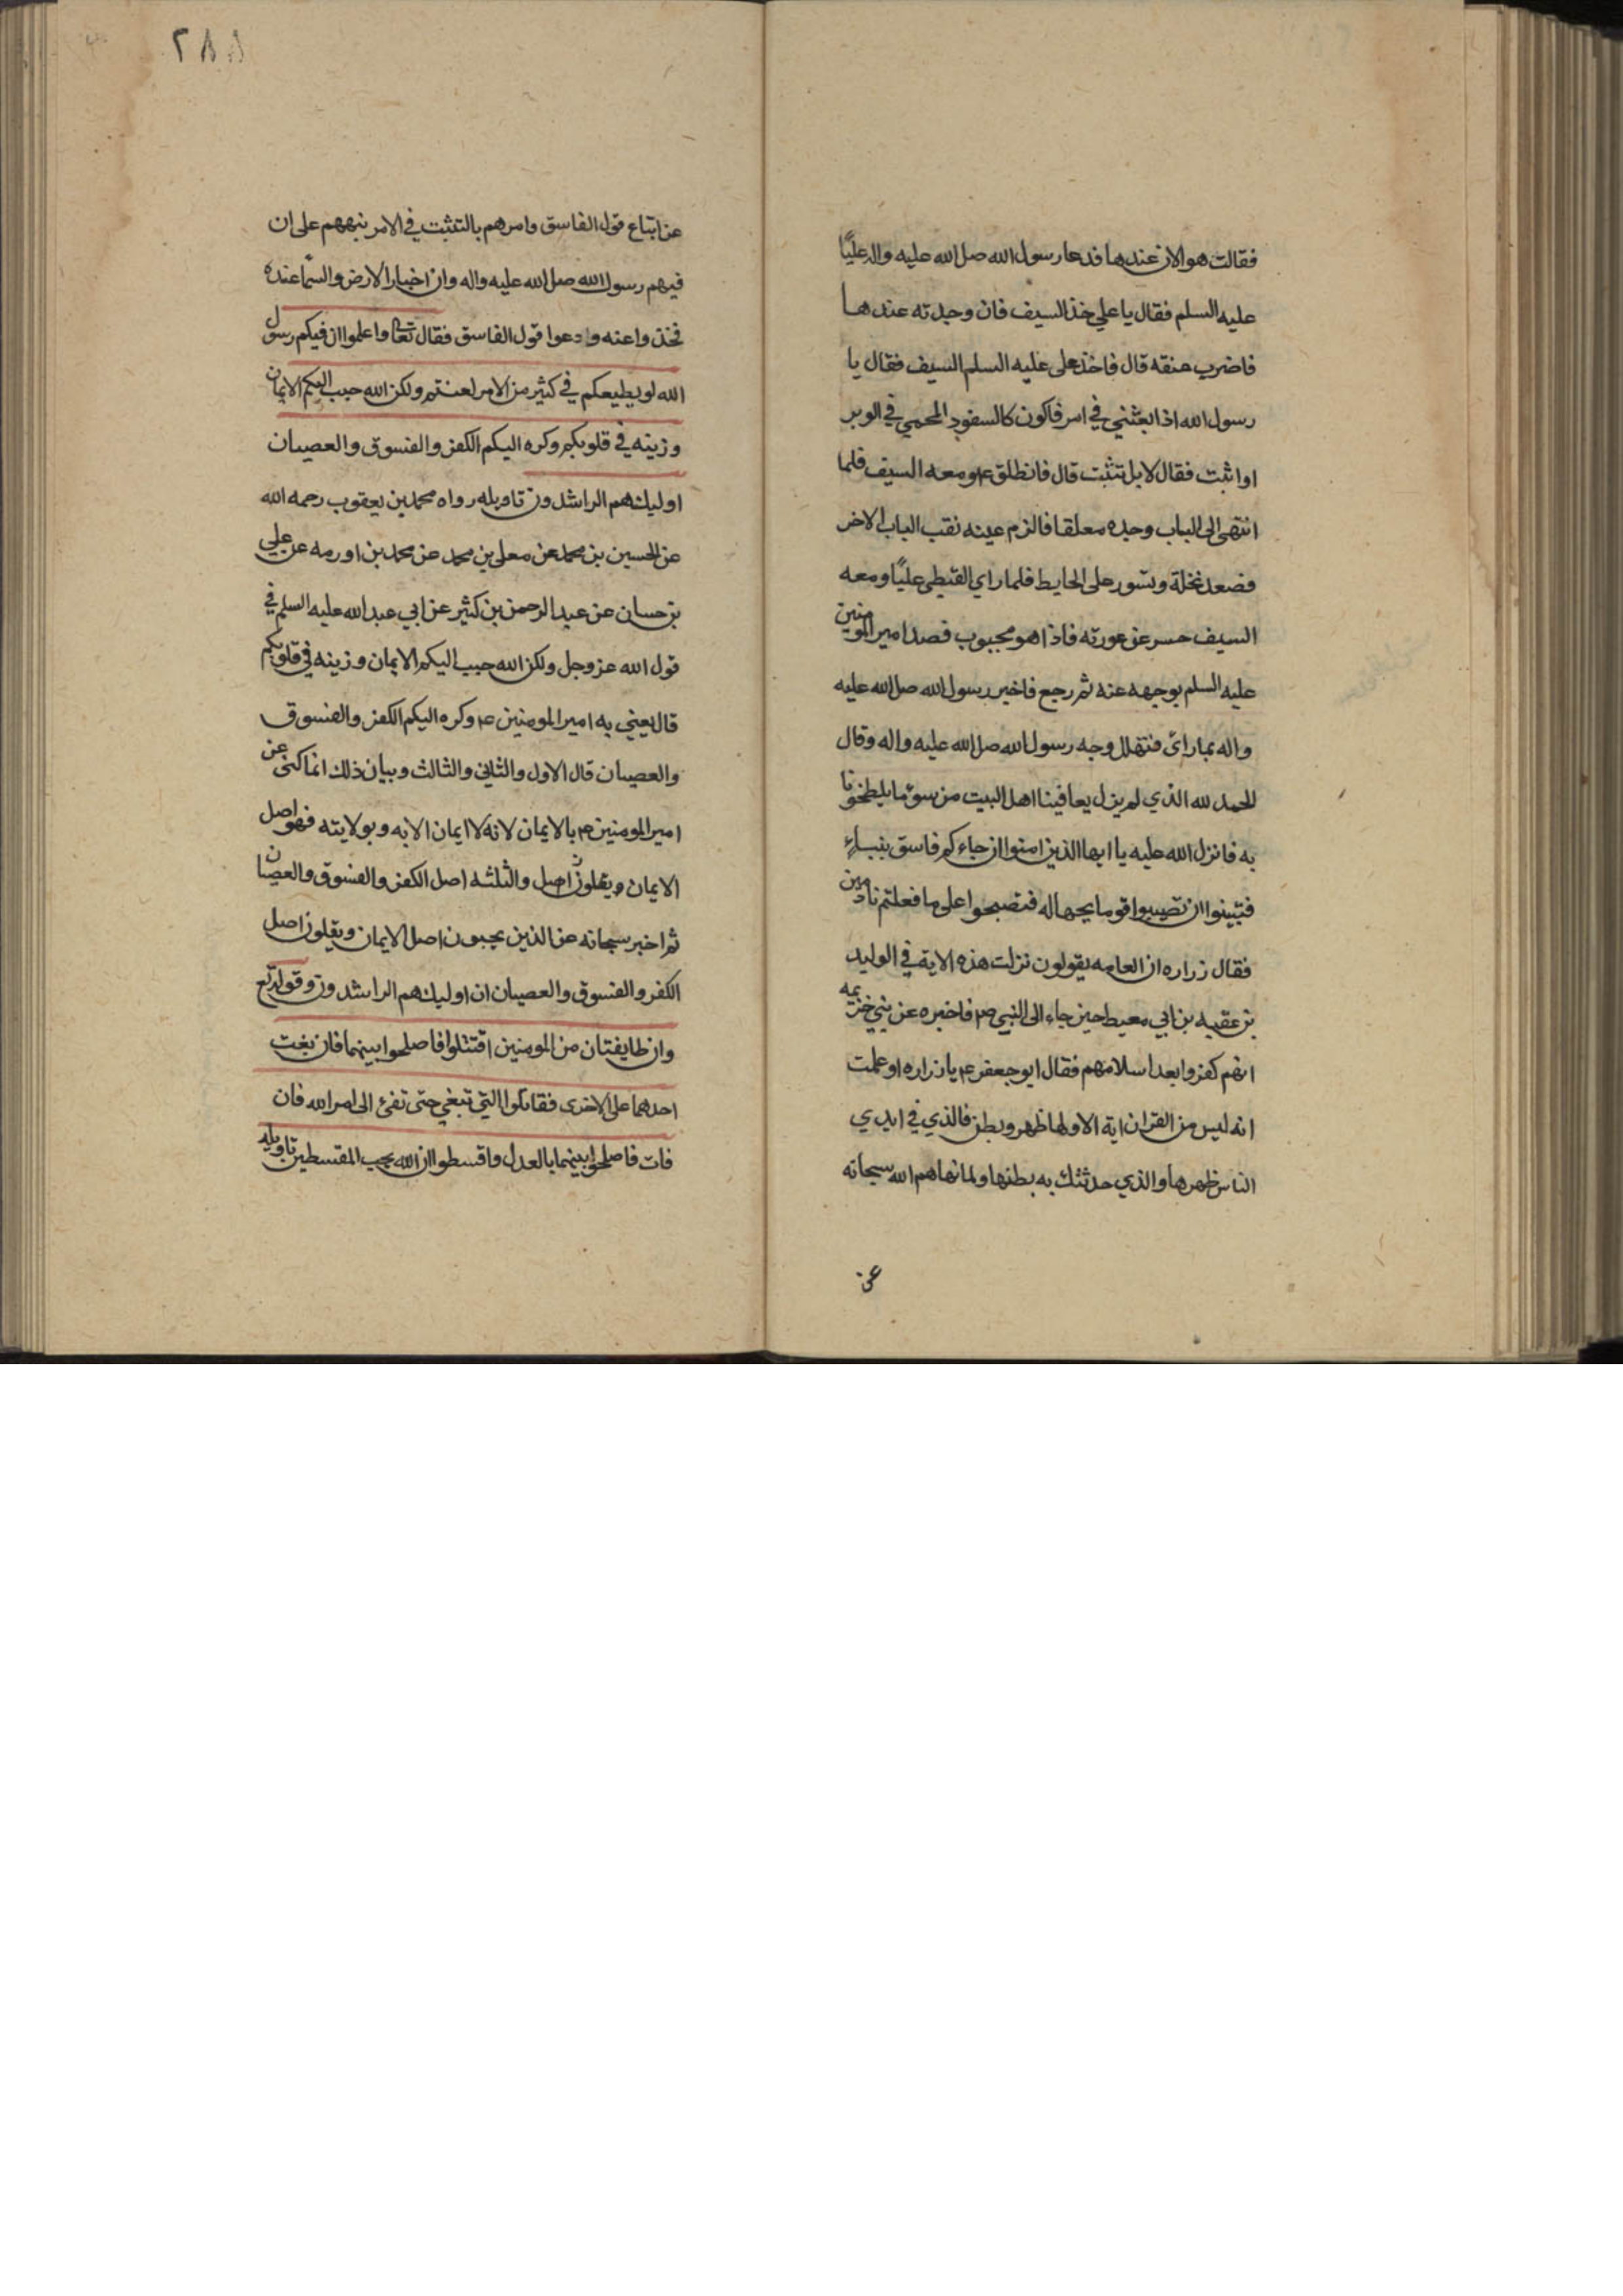 فقالت هو الان عندها فدعا رسول الله صلى الله عليه واله عليًا
عليه السلم فقال يا علي خذ السيف فان وجدته عندها
فاضرب عنقه قال فاخذ على عليه السلم السيف فقال يا
رسول الله اذا بعثتني في امر فاكون كالسفود المحمي في الوبر
او اثبت فقال لا بل تثبت قال فانطلق ع م ومعه السيف فلما
انتهى الى الباب وجده معلقا فالزم عينه نقب الباب الاخر
فصعد نخلة وتسور على الحايط فلما راي القبطي عليًا ومعه
السيف حسر عن عورته فاذا هو مجبوب فصد امير المومنين
عليه السلم بوجهه عنه ثم رجع فاخبر رسول الله صلى الله عليه
واله بما راى فتهلل وجه رسول الله صلى الله عليه واله وقال
الحمد لله الذي لم يزل يعافينا اهل البيت من سوء ما يلطخونا
به فانزل الله عليه يا ايها الذين امنوا ان جاءكم فاسق بنباء
فتبينوا ان تصيبوا قوما بجهاله فتصبحوا على ما فعلتم نادمين
فقال زراره ان العامه يقولون نزلت هذه الاية في الوليد
بن عقبه بن ابي معيط حين جاء الى النبي صم فاخبره عن بني خزيمه
انهم كفروا بعد اسلامهم فقال ابو جعفر ع م يا زراره او علمت
انه ليس من القران اية الا ولها ظهر وبطن فالذي في ايدي
الناس ظهرها والذي حدثتك به بطنها ولما نهاهم الله سبحانه
عن
٢٨٨
عن اتباع قول الفاسق وامرهم بالتثبت في الامر نبههم على ان
فيهم رسول الله صلى الله عليه واله وان اخبار الارض والسما عنده
فخذوا عنه ودعوا قول الفاسق فقال تعا واعلموا ان فيكم رسول
الله لو يطيعكم في كثير من الامر لعنتم ولكن الله حبب اليكم الايمان
وزينه في قلوبكم وكره اليكم الكفر والفسوق والعصيان
اوليك هم الراشدون تاويله رواه محمد بن يعقوب رحمه الله
عن الحسين بن محمد عن معلى بن محمد عن محمد بن اورمه عن علي
بن حسان عن عبد الرحمن بن كثير عن ابي عبد الله عليه السلم في
قول الله عز وجل ولكن الله حبب اليكم الايمان وزينه في قلوبكم
قال يعني به امير المومنين ع م وكره اليكم الكفر والفسوق
والعصيان قال الاول والثاني والثالث وبيان ذلك انما كنى عن
امير المومنين ع م بالايمان لانه لا ايمان الا به وبولايته فهو اصل
الايمان اصل والثلثه اصل الكفر والفسوق والعصيان
ثم اخبر سبحانه عن الذين يحبون اصل الايمان ويقلون اصل
الكفر والفسوق والعصيان ان اوليك هم الراشدون وقوله تع
وان طايفتان من المومنين اقتتلوا فاصلحوا بينهما فان بغت
احدهما على الاخرى فقاتلوا التي تبغي حتى تفئ الى امر الله فان
فات فاصلحوا بينهما بالعدل واقسطوا ان الله يحب المقسطين تاويله